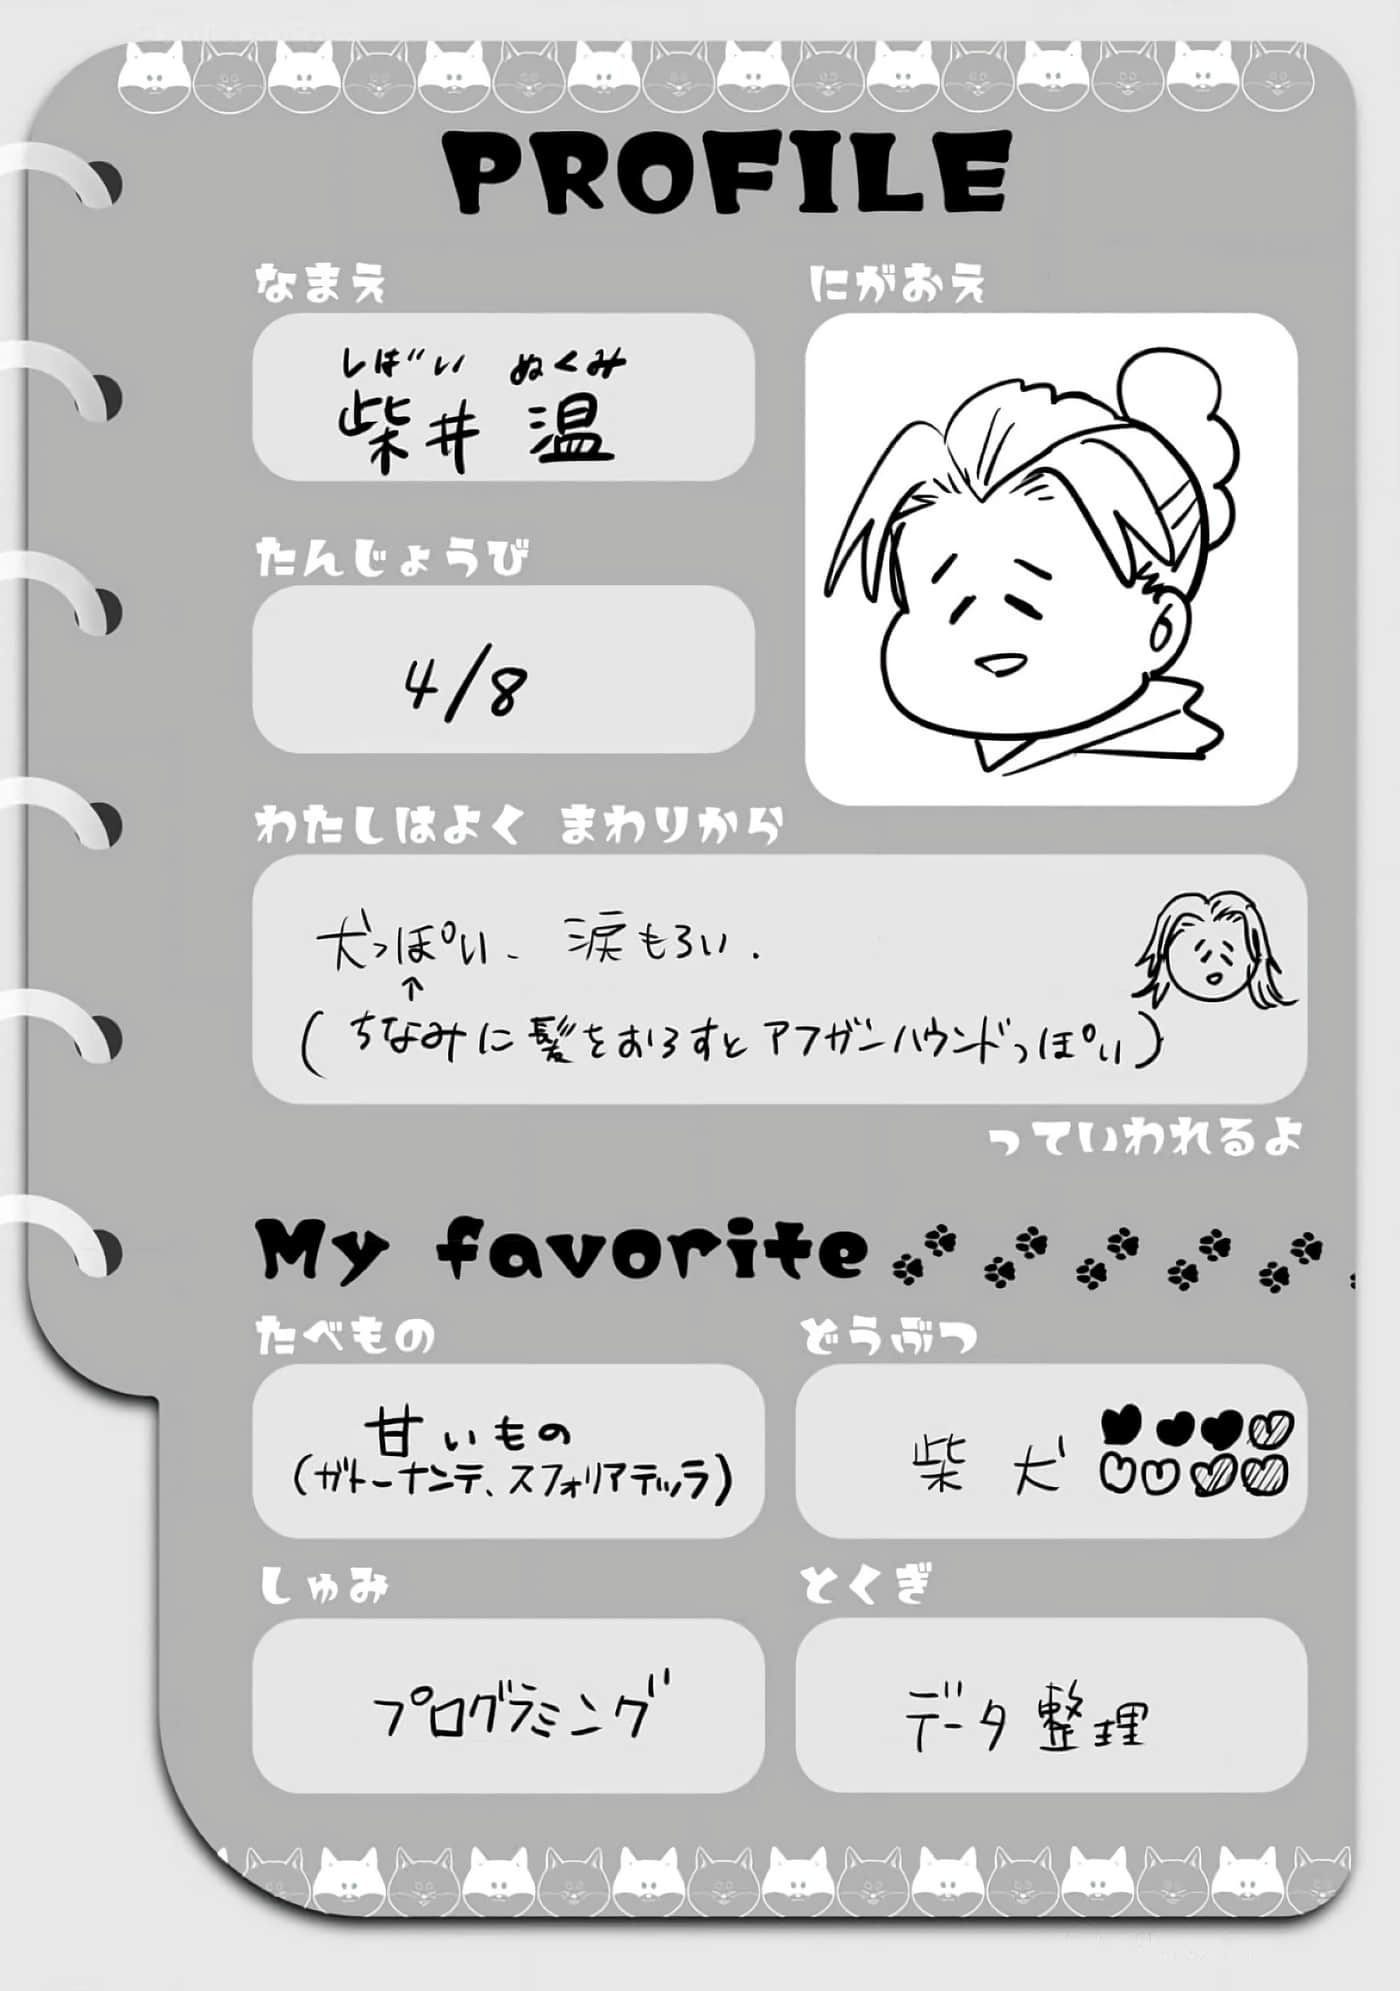 PROFILE
なまえ
しばい ぬくみ
柴井 温
にがおえ
たんじょうび
4/8
わたしはよく まわりから
犬っぽい、涙もろい.
↑
(ちなみに髪をおろすとアフガンハウンドっぽい)
っていわれるよ
My favorite
たべもの
甘いもの
(ガトーナンテ、スフォリアテッラ)
どうぶつ
柴犬
しゅみ
プログラミング
とくぎ
データ整理